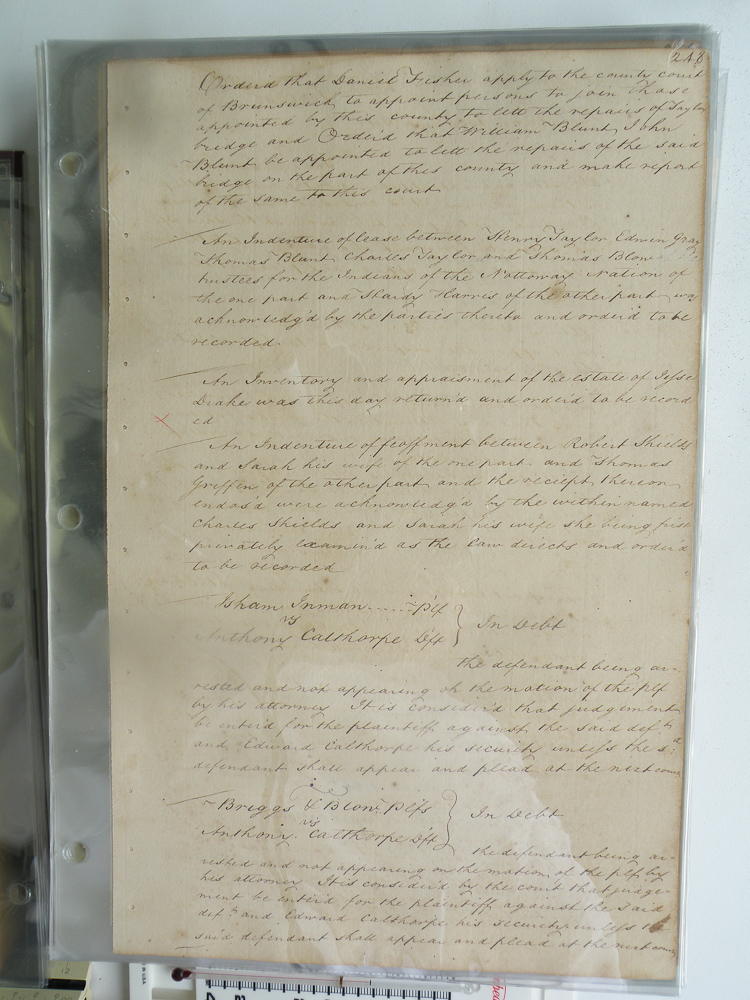 248
Orderd that Daniel Fisher apply to the county court
of Brunswick to appoint persons to join those
appointed by this county to lett the repairs of Taylors
bridge and Orderd that William Blunt, John
Blunt be appointed to lett the repairs of the said
bridge on the part of this county and make report
of the same to this court
An Indenture of lease between Henry Taylor Edwin Gray
Thomas Blunt, Charles Taylor and Thomas Blow
trustees for the Indians of the Nottoway Nation of
the one part and Hardy Harris of the other part was
acknowledg'd by the parties thereto and order'd to be
recorded.
An Inventory and appraisment of the estate of Jesse
Drake was this day return'd and order'd to be record
ed
An Indenture of feoffment between Robert Shields
and Sarah his wife of the one part and Thomas
Griffin of the other part and the reciept thereon
endos'd were acknowledg'd by the within named
Charles Shields and Sarah his wife she being first
privately examin'd as the law directs and order'd
to be recorded
Isham Inman ..... Plf
vs
Anthony Calthorpe Deft
In Debt
the defendant being ar-
rested and not appearing oh the motion of the Plf
by his attorney It is consider'd that judgement
be enter'd for the plaintiff against the said deft
and Edward Calthorpe his security unless the sd
defendant shall appear and plead at the next court
Briggs & Blow Plfs
vs
Anthony Calthorpe Deft
In Debt
the defendant being ar-
rested and not appearing on the motion of the plf by
his attorney It is consider'd by the court that judge-
ment be enter'd for the plaintiff against the said
deft and Edward Calthorpe his security unless the
said defendant shall appear and plead at the next court
12